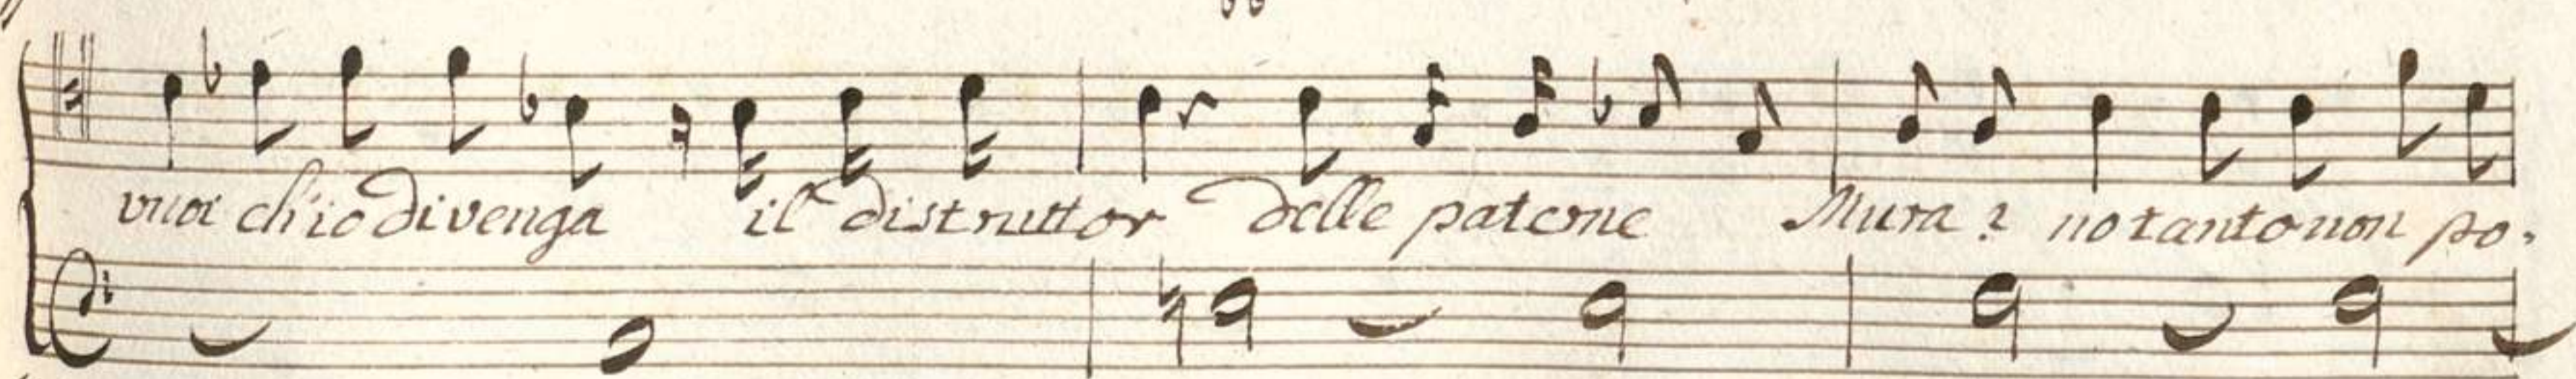 vuoi ch'io divenga il distruttor delle paterne Mura? no tanto non po,